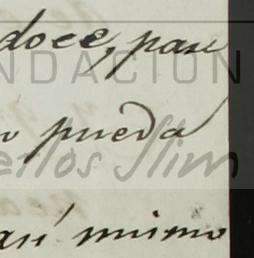 doce, par
FUNDACIÓN
pueda
Carlos Slim
así mismo